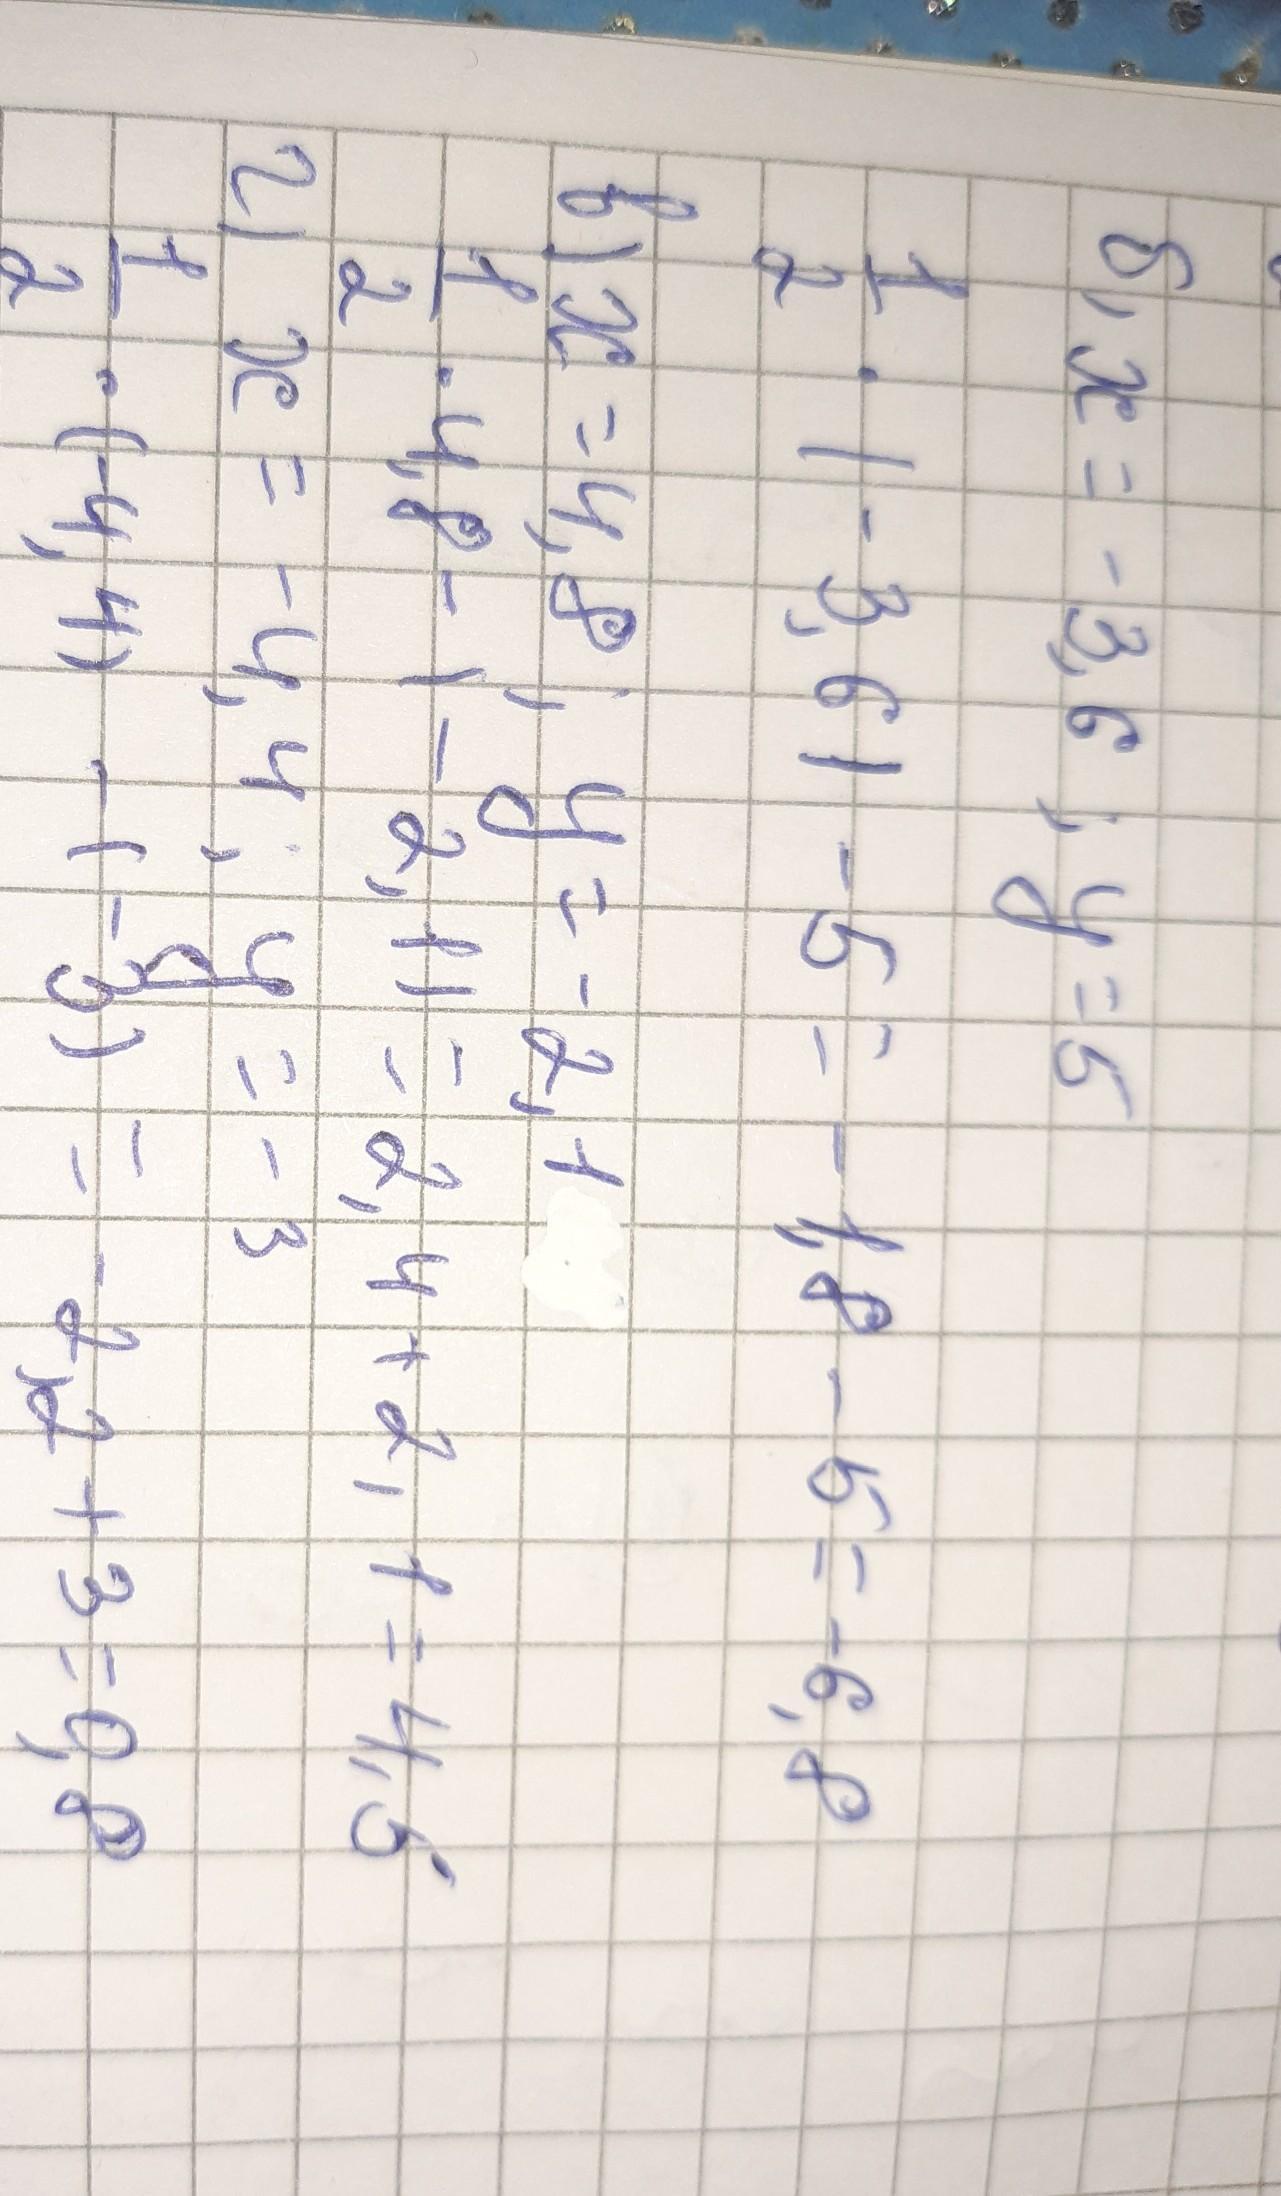 б) x = -3,6 ; y = 5
1/2 · (-3,6) - 5 = -1,8 - 5 = -6,8
в) x = 4,8 ; y = -2,1
1/2 · 4,8 - (-2,1) = 2,4 + 2,1 = 4,5
г) x = -4,4 ; y = -3
1/2 · (-4,4) - (-3) = -2,2 + 3 = 0,8